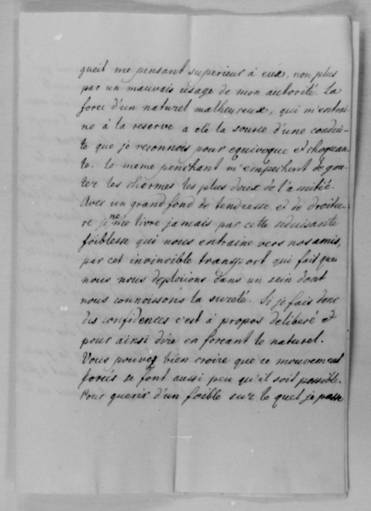 gueil me pensant superieur à eux, non plus
par un mauvais usage de mon autorité. La
force d'un naturel malheureux, qui m'entrai
ne à la reserve a eté la source d'une condui-
te que je reconnois pour equivoque et choquan
te. le meme penchant m'empechent de gou-
ter les charmes les plus doux de l'amitié.
Avec un grand fond de tendresse et de droitu-
re je ne me livre jamais par cette seduisante
foiblesse qui nous entraine vers nos amis,
par cet invincible transport qui fait que
nous nous deploions dans un sein dont
nous connoissons la sureté. Si je fais donc
des confidences c'est à propos deliberé et
pour ainsi dire en forcant le naturel.
Vous pouvez bien croire que ce mouvement
forcés se font aussi peu qu'il soit possible.
Pour guerir d'un foible sur le quel je passe